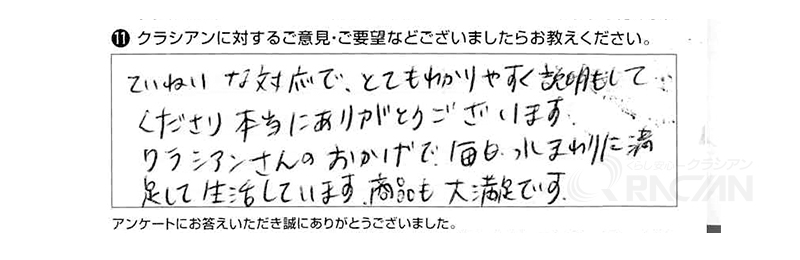 ⓫ クラシアンに対するご意見・ご要望などございましたらお教えください。
ていねいな対応で、とてもわかりやすく説明もして
くださり本当にありがとうございます。
クラシアンさんのおかげで、毎日、水まわりに満
足して生活しています。商品も大満足です。
くらし安心クラシアン
RNCIAN
アンケートにお答えいただき誠にありがとうございました。